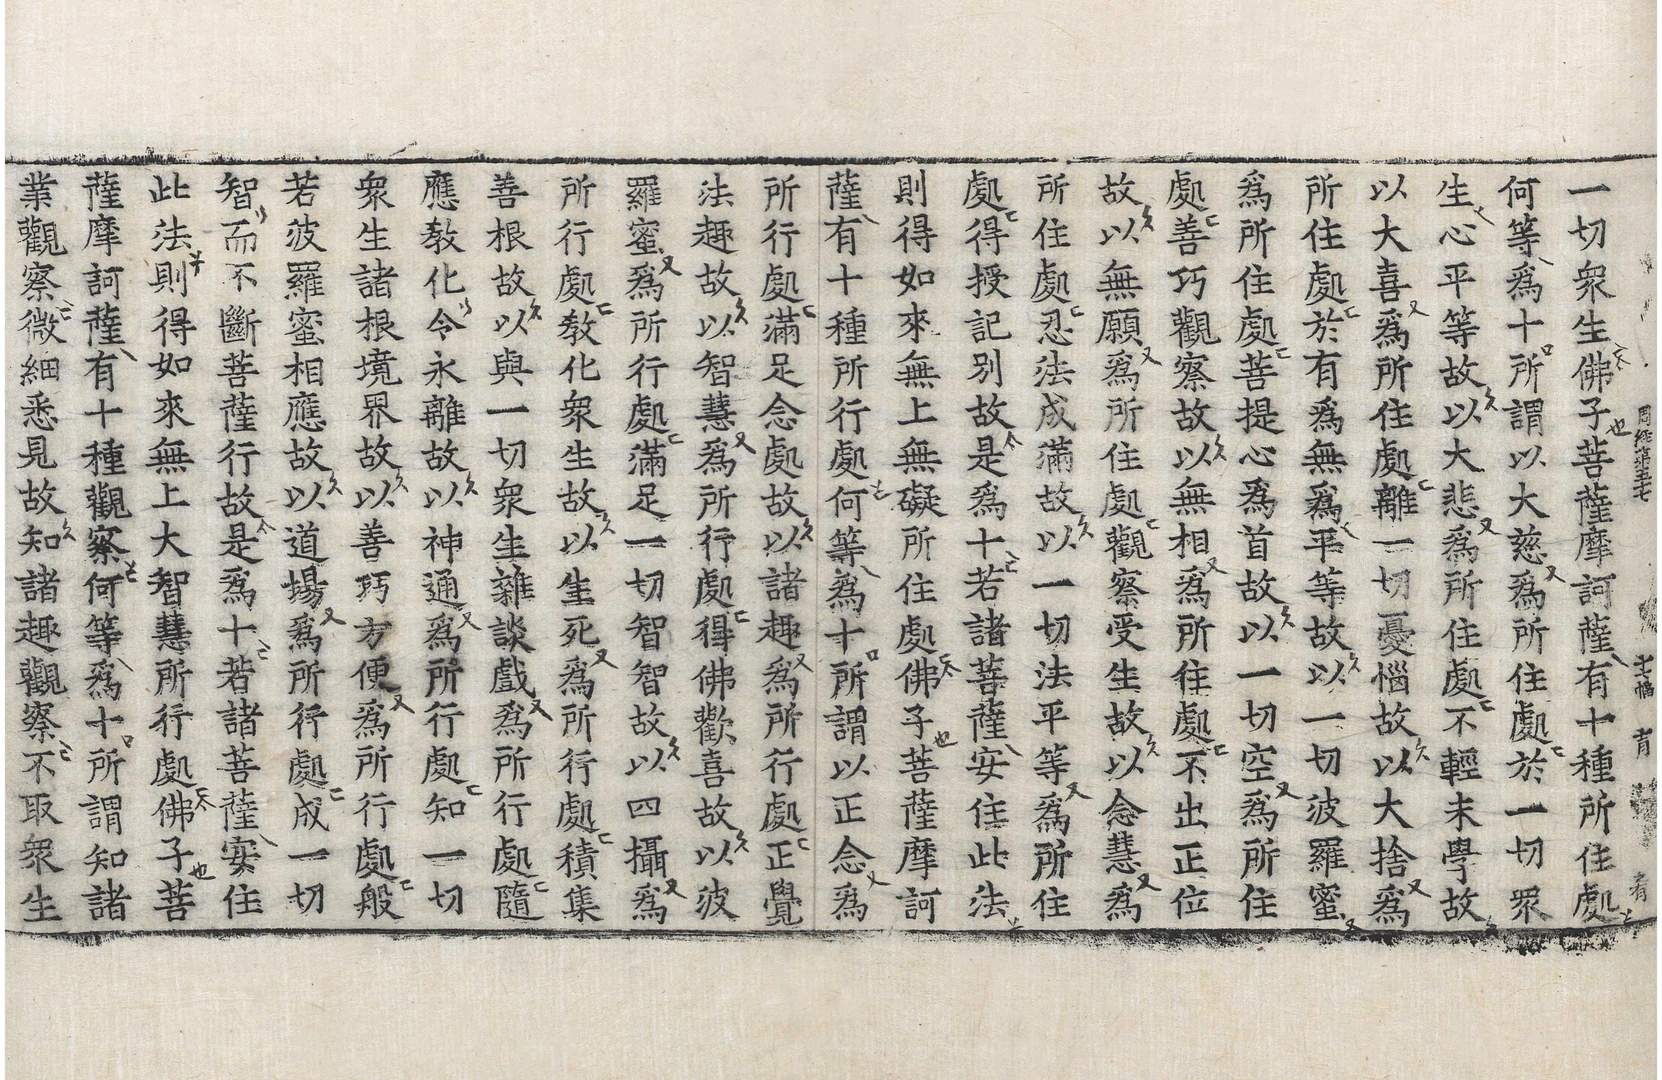 周經第五十七
一切衆生佛子菩薩摩訶薩有十種所住處
何等爲十所謂以大慈爲所住處於一切衆
生心平等故以大悲爲所住處不輕未學故
以大喜爲所住處離一切憂惱故以大捨爲
所住處於有爲無爲平等故以一切波羅蜜
爲所住處菩提心爲首故以一切空爲所住
處善巧觀察故以無相爲所住處不出正位
故以無願爲所住處觀察受生故以念慧爲
所住處忍法成滿故以一切法平等爲所住
處得授記別故是爲十若諸菩薩安住此法
則得如來無上無礙所住處佛子菩薩摩訶
薩有十種所行處何等爲十所謂以正念爲
所行處滿足念處故以諸趣爲所行處正覺
法趣故以智慧爲所行處得佛歡喜故以波
羅蜜爲所行處滿足一切智智故以四攝爲
所行處敎化衆生故以生死爲所行處積集
善根故以與一切衆生雜談戲爲所行處隨
應敎化令永離故以神通爲所行處知一切
衆生諸根境界故以善巧方便爲所行處般
若波羅蜜相應故以道場爲所行處成一切
智而不斷菩薩行故是爲十若諸菩薩安住
此法則得如來無上大智慧所行處佛子菩
薩摩訶薩有十種觀察何等爲十所謂知諸
業觀察微細悉見故知諸趣觀察不取衆生